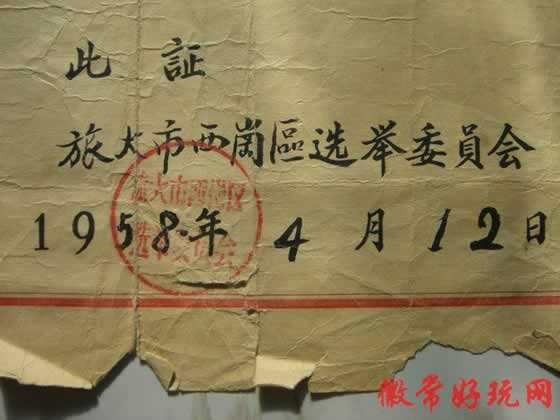 此 証
旅大市西崗區选举委員会
1958年 4月12日
旅大市西崗区
选举委员会
微常好玩网